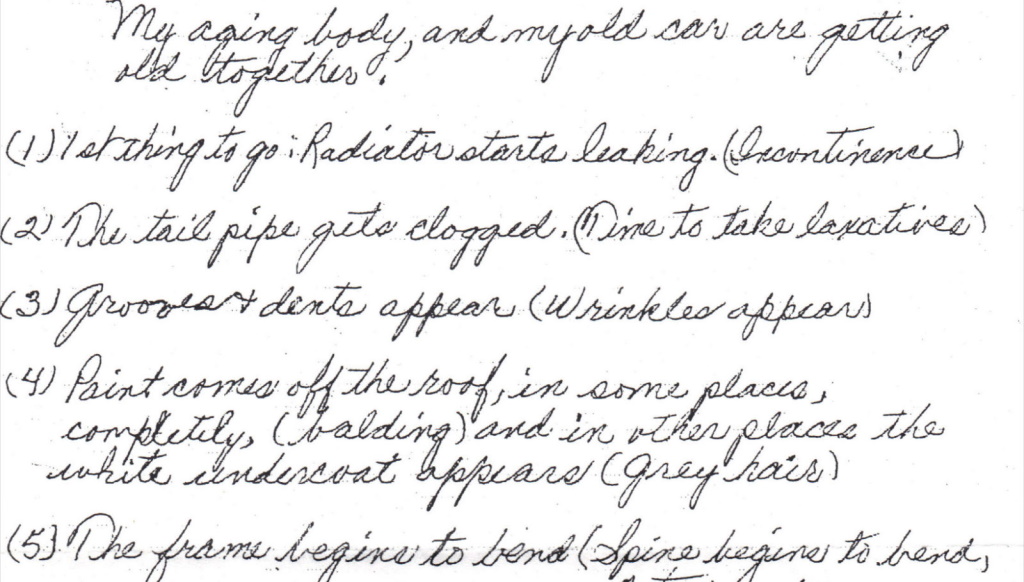 My aging body, and my old car are getting
old together.
(1) 1st thing to go: Radiator starts leaking. (Incontinence)
(2) The tail pipe gets clogged. (Time to take laxatives)
(3) Grooves + dents appear (Wrinkles appear)
(4) Paint comes off the roof, in some places,
completely, (balding) and in other places the
white undercoat appears (Grey hair)
(5) The frame begins to bend (Spine begins to bend,